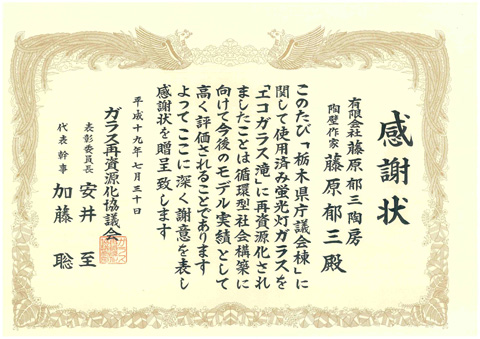 感謝状
有限会社藤原郁三陶房
陶壁作家 藤原郁三殿
このたび「栃木県庁議会棟」に
関して使用済み蛍光灯ガラスを
「エコガラス滝」に再資源化され
ましたことは循環型社会構築に
向けて今後のモデル実績として
高く評価されることであります
よってここに深く謝意を表し
感謝状を贈呈致します
平成十九年七月三十日
ガラス再資源化協議会
表彰委員長 安井 至
代表幹事 加藤 聡